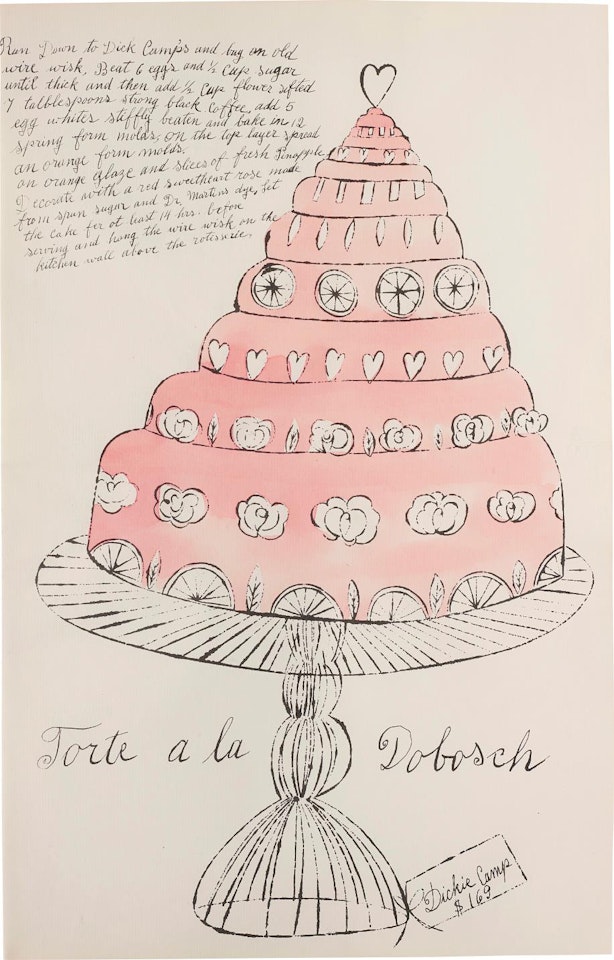 Run Down to Dick Camps and bug an old
wire wisk, Beat 6 eggs and ½ cup sugar
until thick and then add ½ Cup flower sifted
7 talblespoons strong black Coffee, add 5
egg whites stiffly beaten and bake in 12
spring form molds, on the top layer spread
an orange form molds.
on orange glaze and slices of fresh Pineapple
Decorate with a red sweetheart rose made
from spun sugar and Dr. Martens dye, let
the cake for at least 14 hrs. before
serving and hang the wire wisk on the
kitchen wall above the roteserie.
Torte a la Dobosch
Dickie Camp
$ 1.69